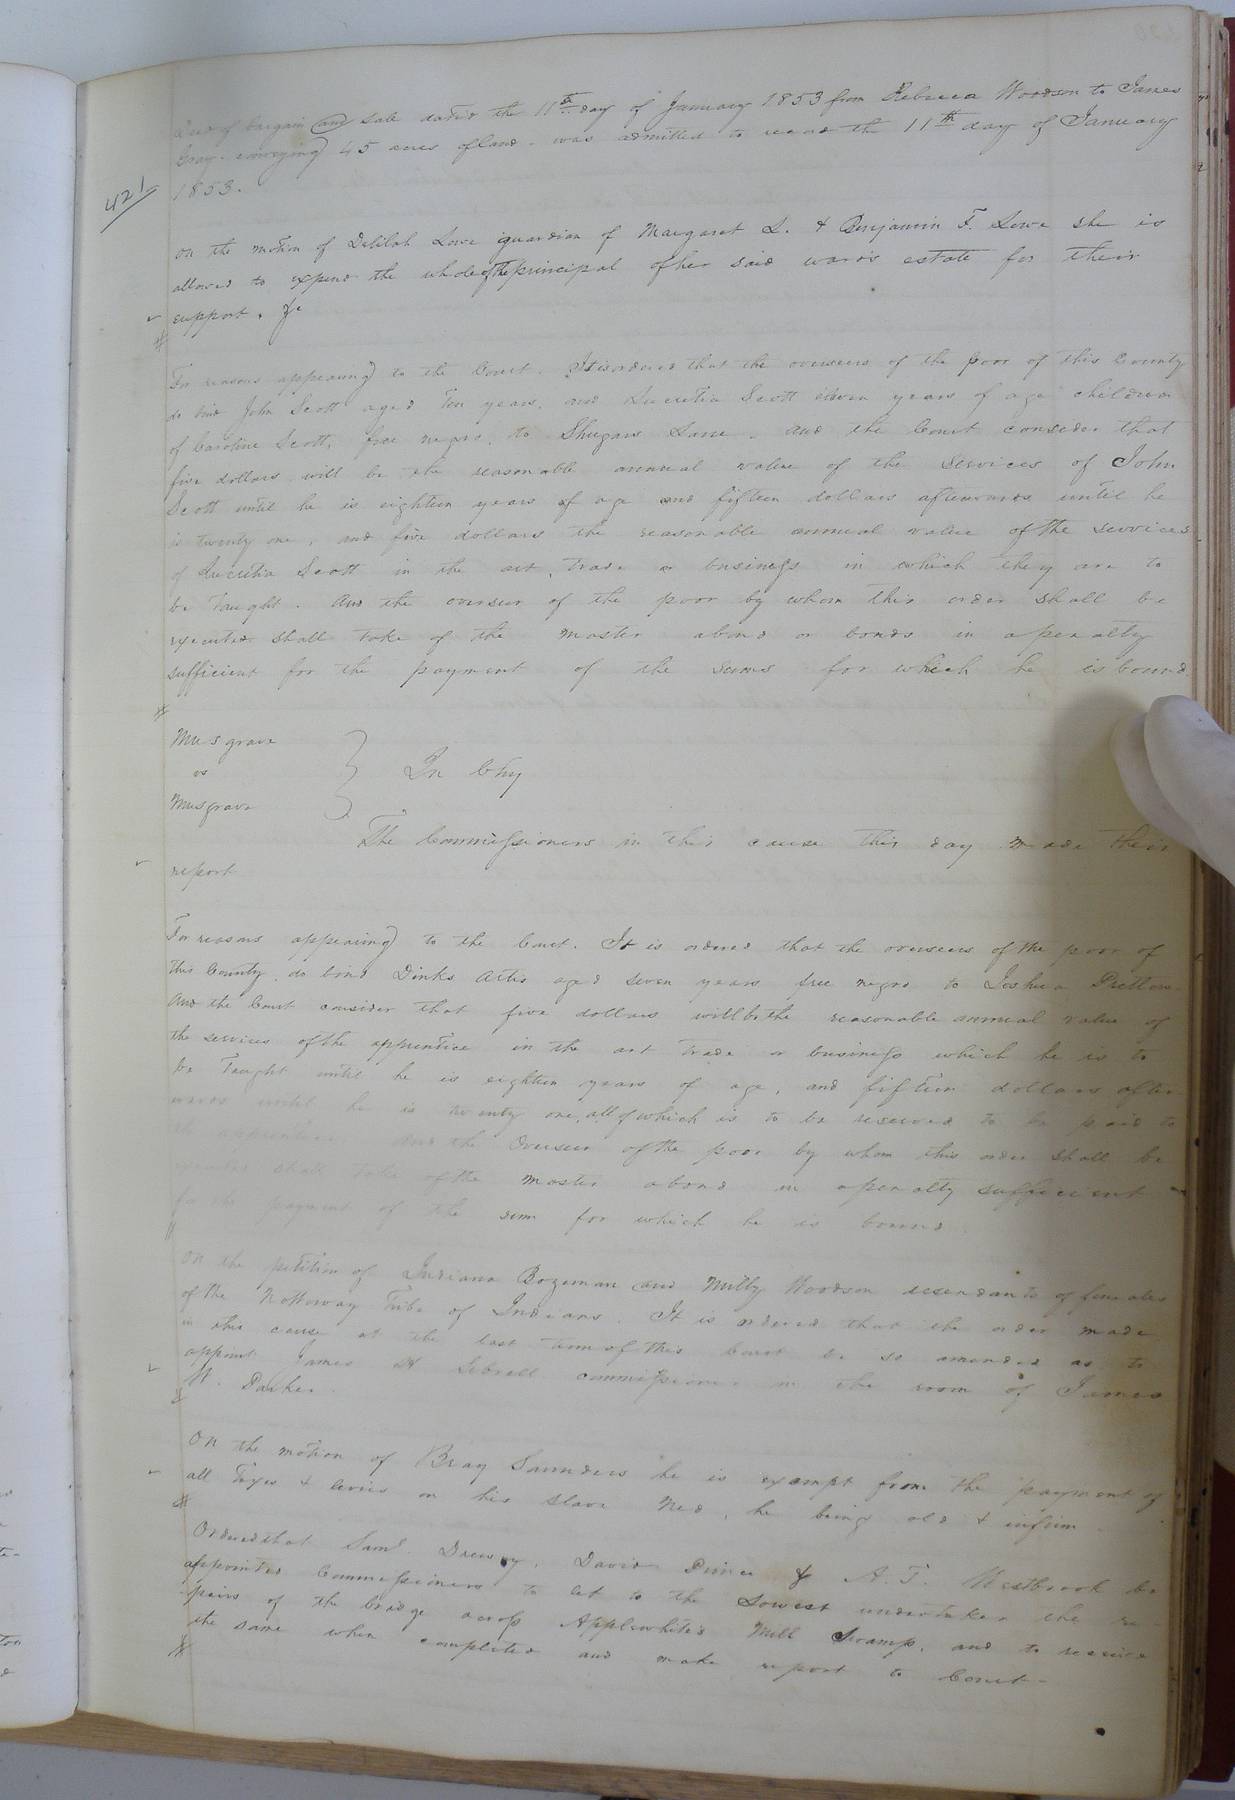 Deed of bargain and sale dated the 11th day of January 1853 from Rebecca Woodson to James
Gray conveying 45 acres of land. was admitted to record the 11th day of January
1853.
421
On the motion of Delilah Lowe guardian of Margaret L. & Benjamin F. Lowe she is
allowed to expend the whole of the principal of her said wards estate for their
support. &c
For reasons appearing to the Court. It is ordered that the overseers of the poor of this County
do bind John Scott aged Ten years, and Lucretia Scott eleven years of age children
of Caroline Scott, free negro, to Shugars Lane. and the Court consider that
five dollars will be the reasonable annual value of the services of John
Scott until he is eighteen years of age and fifteen dollars afterwards until he
is twenty one, and five dollars the reasonable annual value of the services
of Lucretia Scott in the art, trade or business in which they are to
be taught. And the overseer of the poor by whom this order shall be
executed shall take of the master a bond or bonds in a penalty
sufficient for the payment of the sums for which he is bound
Musgrave
vs
Musgrave
In Chy
The Commissioners in this cause this day made their
report
For reasons appearing to the Court. It is ordered that the overseers of the poor of
this County do bind Dinks Artis aged seven years free negro to Joshua Pretlow
And the Court consider that five dollars will be the reasonable annual value of
the services of the apprentice in the art trade or business which he is to
be Taught until he is eighteen years of age, and fifteen dollars after
wards until he is twenty one, all of which is to be reserved to be paid to
apprentice. And the Overseer of the poor by whom this order shall be
executed shall take of the master a bond in a penalty sufficient
for the payment of the sum for which he is bound.
On the petition of Indiana Bozeman and Milly Woodson descendants of females
of the Nottoway Tribe of Indians. It is ordered that the order made
in this cause at the last term of this Court be so amended as to
appoint James H Sebrell commissioner in the room of James
W. Parker.
On the motion of Bray Saunders he is exempt from the payment of
all Taxes & levies on his slave Ned, he being old & infirm.
Ordered that Saml. Drewry, David Prince & A. T. Westbrook be
appointed Commissioners to let to the Lowest undertaker the re-
pairs of the bridge across Applewhite's Mill Swamp, and to receive
the same when completed and make report to Court-